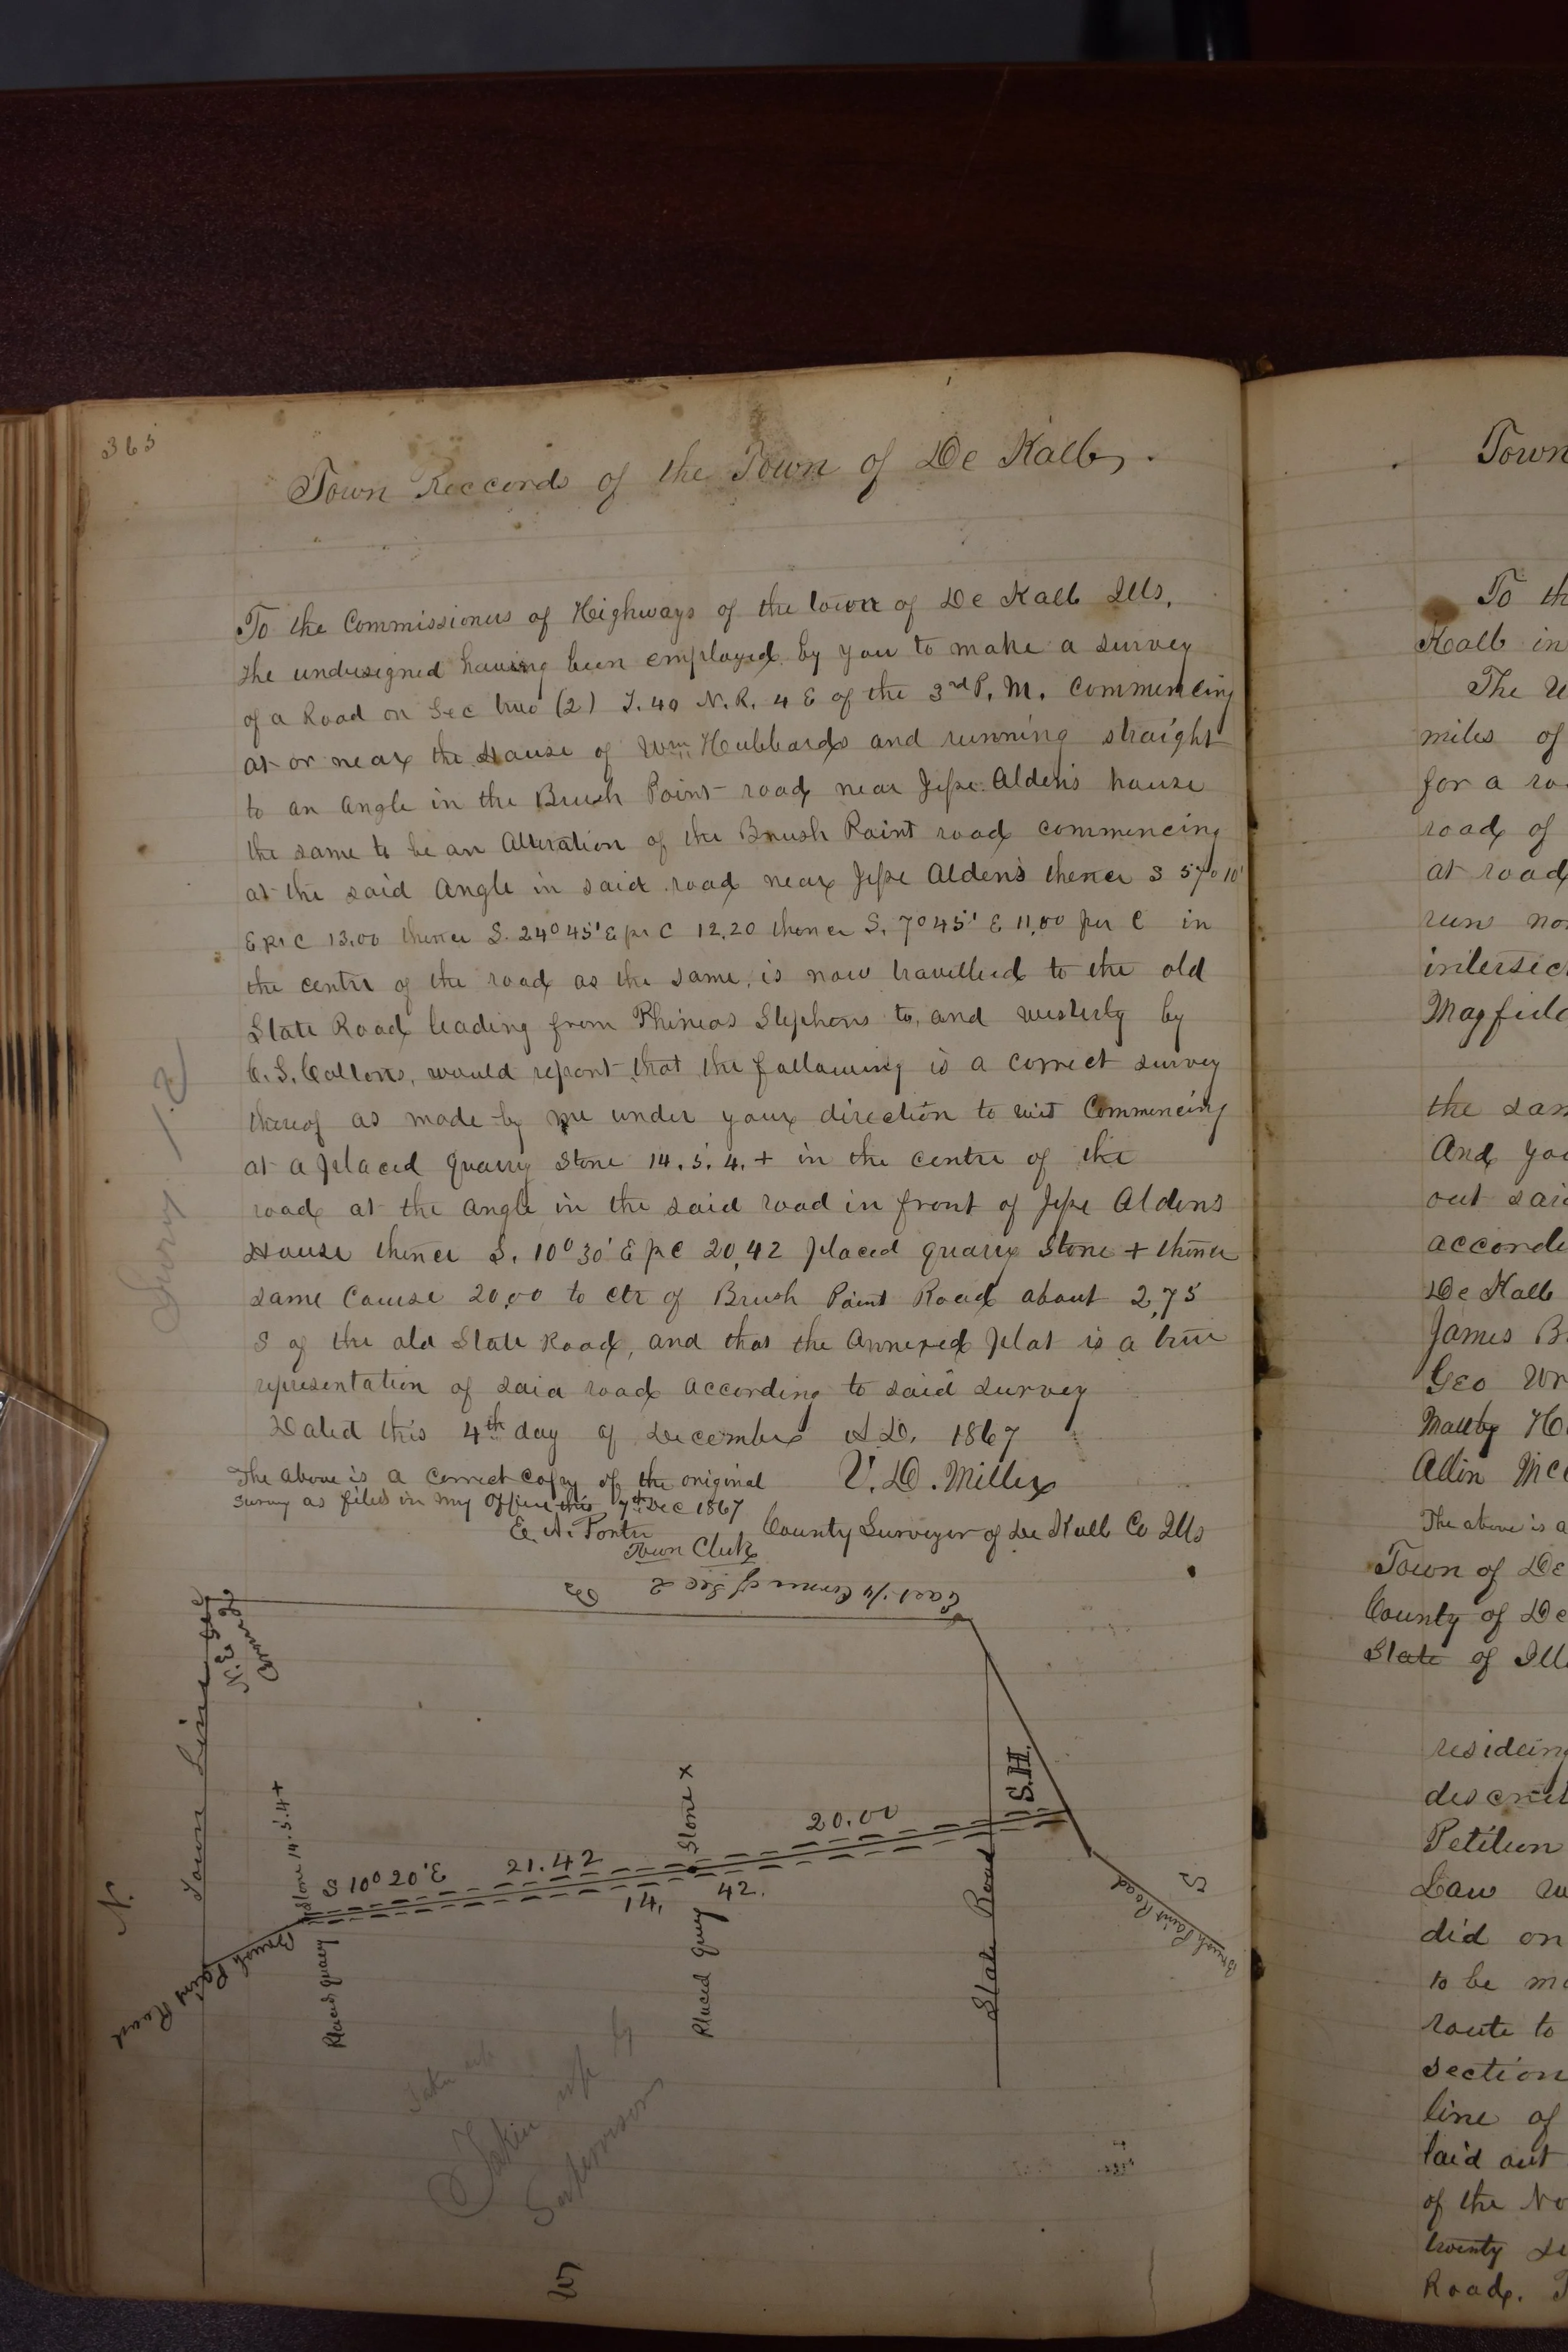 365
Town Reccords of the Town of De Kalb.
To the Commissioners of Highways of the town of De Kalb Ills,
the undersigned having been employed by you to make a survey
of a Road on Sec two (2) T. 40 N. R. 4 E of the 3rd P. M. Commencing
at or near the House of Wm Hubbards and running straight
to an angle in the Brush Point road near Jesse Alden's house
the same to be an Alteration of the Brush Point road commencing
at the said Angle in said road near Jesse Alden's thence S 57° 10'
E pr C 13.00 thence S. 24° 45' E pr C 12.20 thence S. 7° 45' E 11,00 per C in
the centre of the road as the same, is now travelled to the old
State Road leading from Phineas Stephens to, and westerly by
would report that the following is a correct survey
thereof as made by me under your direction to wit Commencing
at a placed quarry Stone 14. 5. 4. + in the centre of the
road at the Angle in the said road in front of Jesse Aldens
House thence S. 10° 30' E pr C 20,42 placed quarry Stone + thence
same Course 20,00 to ctr of Brush Point Road about 2,75
S of the old State Road, and that the Annexed plat is a true
representation of said road according to said survey
Dated this 4th day of December A.D. 1867
The above is a correct copy of the original
Survey as filed in my Office this 7th Dec 1867
V. D. Miller
E. A. Porter
Town Clerk
County Surveyor of De Kalb Co Ills
East 1/4 Corner of Sec 2
E
N. E. Sec
Corner
Town Line
Stone 14.5.4+
S 10° 20' E
21.42
Stone x
20.00
S.H.
14,
42.
Placed quary
Placed quary
State Road
Brush Point Road
Brush Point Road
N.
S
W
Taken up by
Supervisors
Survey 1.2
Town
To th
Kalb in
The U
miles of
for a ro
road of
at road
run no
intersec
Mayfield
the sam
And you
out said
accordi
De Kalb
James B
Geo Wr
Maltby H
Allin Mc
The above is a
Town of De
County of De
State of Ill
resideing
descri
Petition
Law w
did on
to be m
route to
section
line of
laid out
of the No
twenty
Road. T